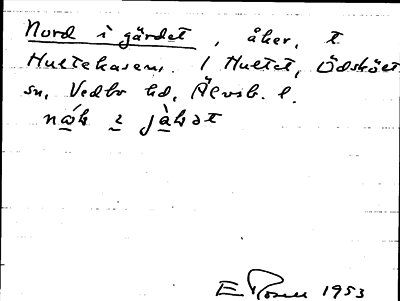 Nord i gärdet, åker, t.
Hultekasen. I Hultet, Ödsköl
sn, Vedbo hd, Älvsb. l.
i
E Rosen 1953